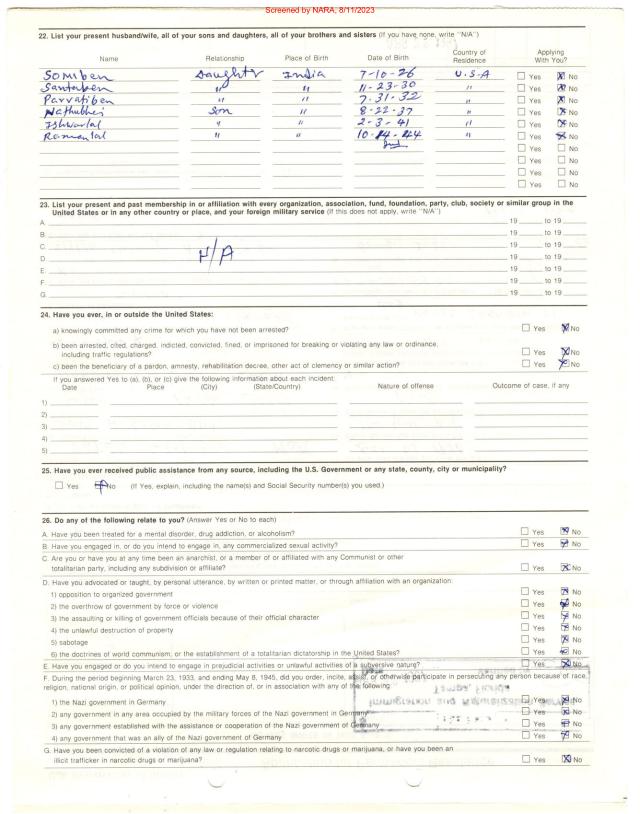 Screened by NARA, 8/11/2023
22. List your present husband/wife, all of your sons and daughters, all of your brothers and sisters (If you have none, write "N/A")
Name Relationship Place of Birth Date of Birth Country of Residence Applying With You?
Somiben Daughter India 7-10-26 U.S.A Yes No
Santaben " " 11-23-30 " Yes No
Parvatiben " " 7.31.32 " Yes No
Nathubhai Son " 8-22-37 " Yes No
Ishwarlal " " 2-3-41 " Yes No
Ramanlal " " 10-14-44 Yes No
Yes No
Yes No
Yes No
Yes No
23. List your present and past membership in or affiliation with every organization, association, fund, foundation, party, club, society or similar group in the
United States or in any other country or place, and your foreign military service (If this does not apply, write "N/A")
A. 19 to 19
B. 19 to 19
C. 19 to 19
D. N/A 19 to 19
E. 19 to 19
F. 19 to 19
G. 19 to 19
24. Have you ever, in or outside the United States:
a) knowingly committed any crime for which you have not been arrested? Yes No
b) been arrested, cited, charged, indicted, convicted, fined, or imprisoned for breaking or violating any law or ordinance,
including traffic regulations? Yes No
c) been the beneficiary of a pardon, amnesty, rehabilitation decree, other act of clemency or similar action? Yes No
If you answered Yes to (a), (b), or (c) give the following information about each incident:
Date Place (City) (State/Country) Nature of offense Outcome of case, if any
1)
2)
3)
4)
5)
25. Have you ever received public assistance from any source, including the U.S. Government or any state, county, city or municipality?
Yes No (If Yes, explain, including the name(s) and Social Security number(s) you used.)
26. Do any of the following relate to you? (Answer Yes or No to each)
A. Have you been treated for a mental disorder, drug addiction, or alcoholism? Yes No
B. Have you engaged in, or do you intend to engage in, any commercialized sexual activity? Yes No
C. Are you or have you at any time been an anarchist, or a member of or affiliated with any Communist or other
totalitarian party, including any subdivision or affiliate? Yes No
D. Have you advocated or taught, by personal utterance, by written or printed matter, or through affiliation with an organization:
1) opposition to organized government Yes No
2) the overthrow of government by force or violence Yes No
3) the assaulting or killing of government officials because of their official character Yes No
4) the unlawful destruction of property Yes No
5) sabotage Yes No
6) the doctrines of world communism, or the establishment of a totalitarian dictatorship in the United States? Yes No
E. Have you engaged or do you intend to engage in prejudicial activities or unlawful activities of a subversive nature? Yes No
F. During the period beginning March 23, 1933, and ending May 8, 1945, did you order, incite, assist, or otherwise participate in persecuting any person because of race,
religion, national origin, or political opinion, under the direction of, or in association with any of the following:
1) the Nazi government in Germany Yes No
2) any government in any area occupied by the military forces of the Nazi government in Germany Yes No
3) any government established with the assistance or cooperation of the Nazi government of Germany Yes No
4) any government that was an ally of the Nazi government of Germany Yes No
G. Have you been convicted of a violation of any law or regulation relating to narcotic drugs or marijuana, or have you been an
illicit trafficker in narcotic drugs or marijuana? Yes No